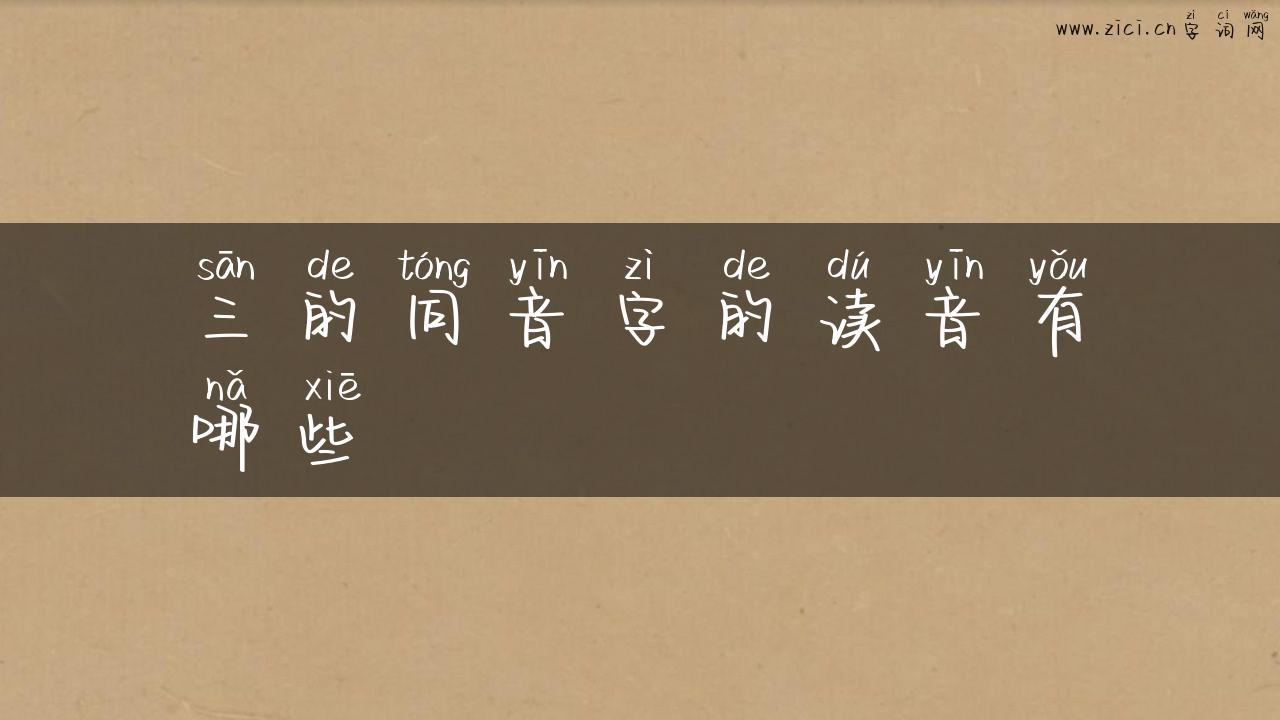 zì cí wǎng
www.zici.cn 字 词 网
sān de tóng yīn zì de dú yīn yǒu
三 的 同 音 字 的 读 音 有
nǎ xiē
哪 些